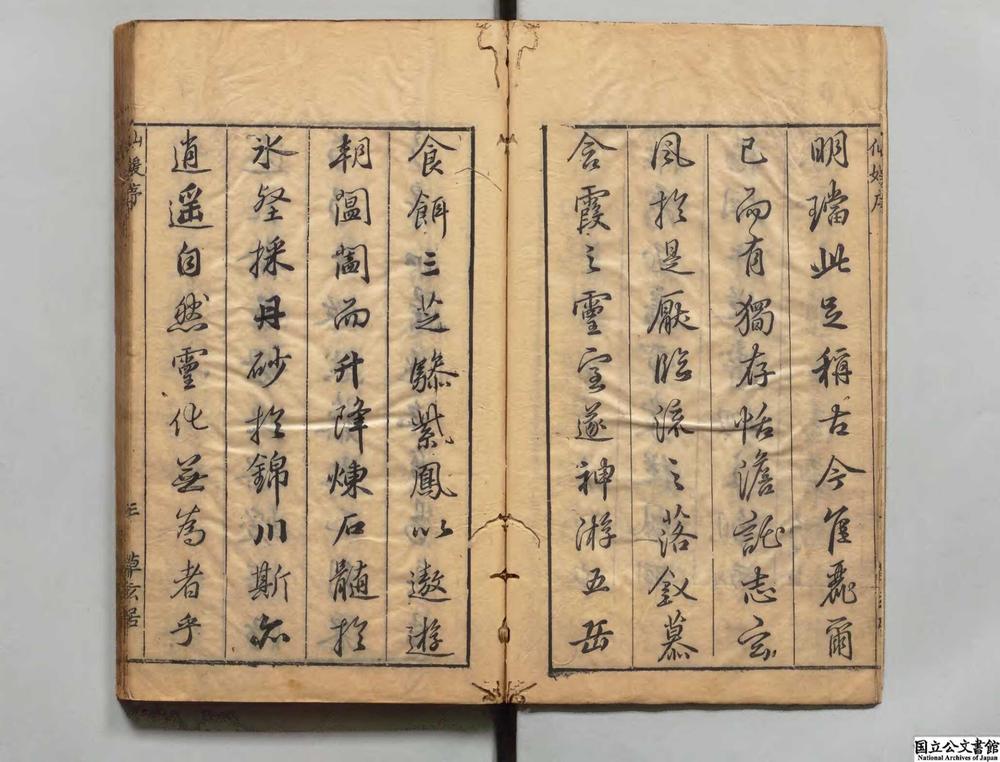 明璫此足稱古今佳麗爾
已而有獨存恬澹託志玄
風於是厭臨流之落釵慕
含霞之靈室遂神游五岳
食餌三芝驂紫鳳以遨遊
朝閶闔而升降煉石髓於
氷壑採丹砂於錦川斯亦
逍遥自然靈化無為者乎
仙媛序
三
草玄居
国立公文書館
National Archives of Japan